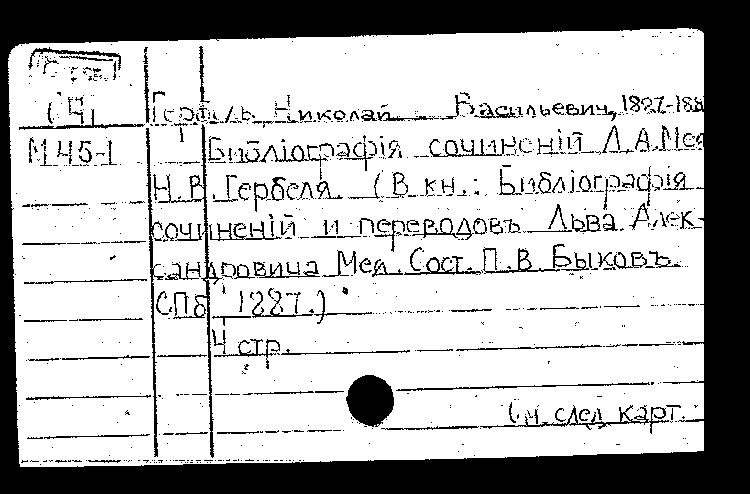 (Ч)
Гербель, Николай Васильевич, 1827-188
М45-1
Библіографія сочиненій Л.А.Мея
Н.В.Гербеля. (В кн.: Библіографія
сочиненій и переводовъ Льва Алек-
сандровича Мея. Сост. П.В. Быковъ.
СПб 1887.)
4 стр.
См. след. карт.